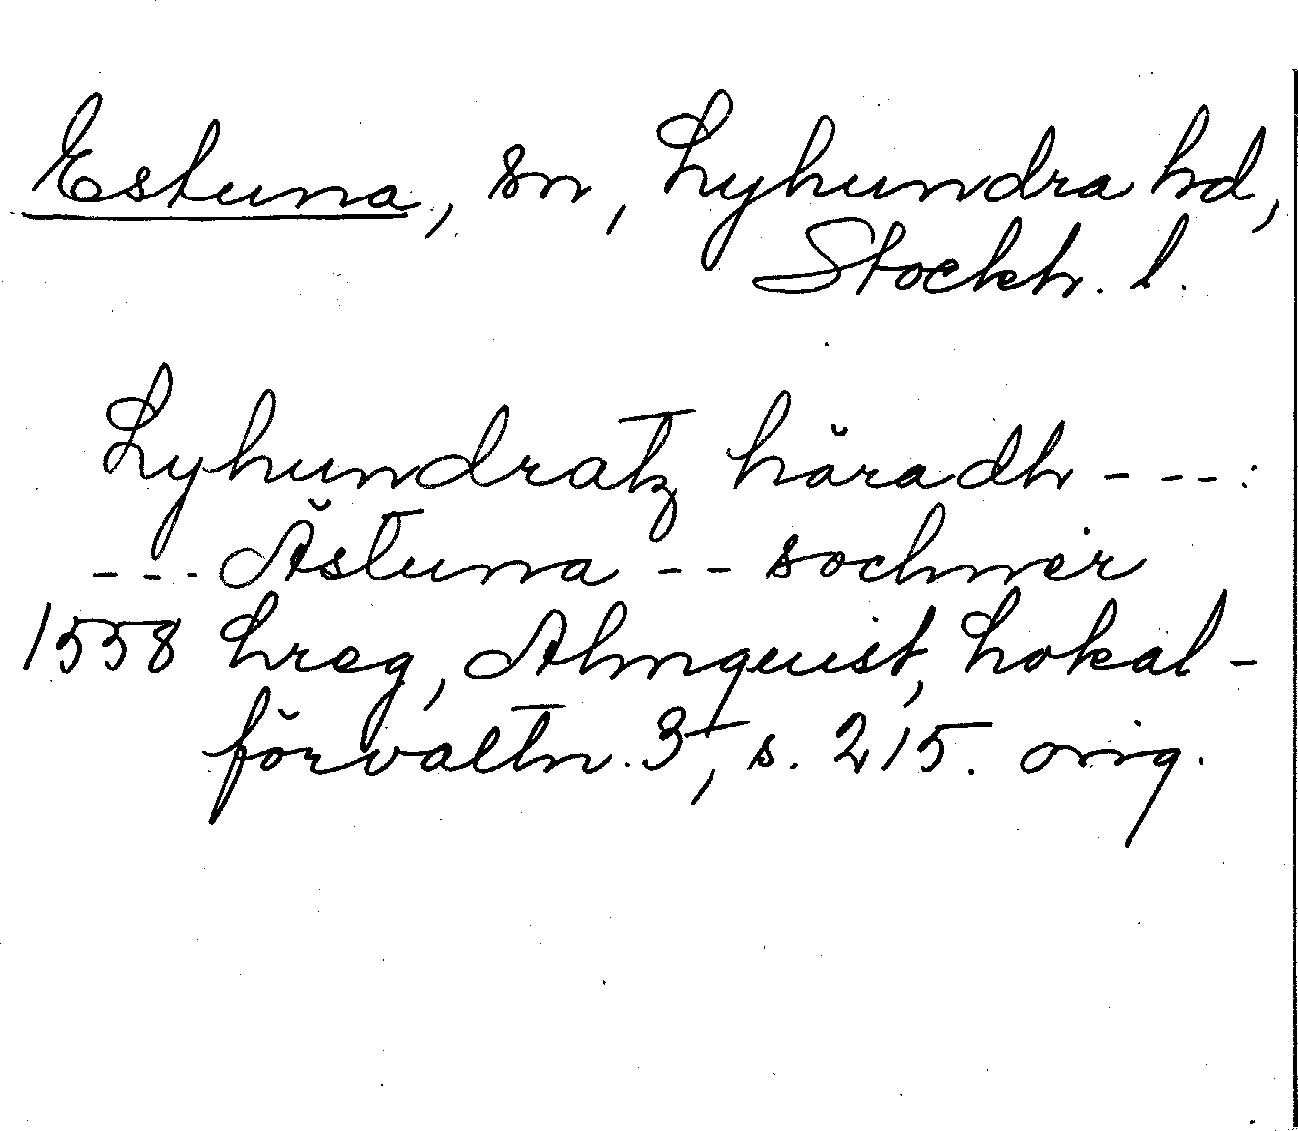 Estuna, sn, Lyhundra hd,
Stockh. l.
Lyhundratz häradh - - - :
- - - Ästuna - - sochner
1558 Lreg, Almquist, Lokal-
förvaltn. 3, s. 215. orig.